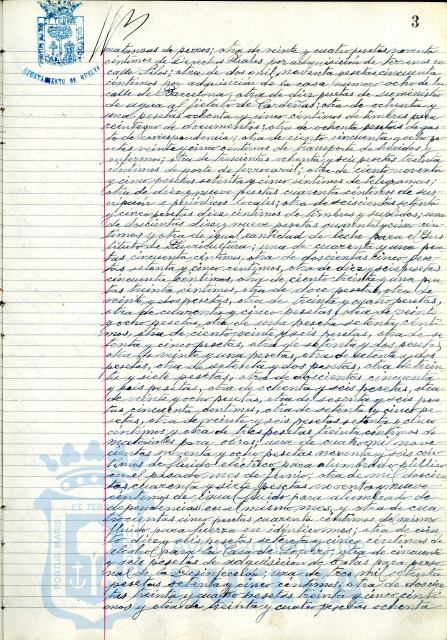 3
AYUNTAMIENTO DE HUELVA
matanzas de perros; otra de veinte y cuatro pesetas noventa
céntimos de Derechos Reales por adquisición de terrenos en
calle Silos; otra de dos mil noventa pesetas cincuenta
céntimos por adquisición de la casa número ocho de la
calle de Barcelona; otra de diez pesetas de suministro
de agua al fielato de Cardeñas; otra de ochenta y
una pesetas ochenta y cinco céntimos de timbres para
reintegro de documentos; otra de ochenta pesetas de gas-
to de correspondencia; otra de ciento cincuenta y ocho pe-
setas veinte y cinco céntimos de transporte de heridos y
enfermos; otra de trescientas ochenta y seis pesetas treinta
céntimos de porte de ferrocarril; otra de ciento noventa
y cinco pesetas setenta y cinco céntimos de telegramas;
otra de diez y nueve pesetas cuarenta céntimos de sus-
cripción a periódicos locales; otra de seiscientas setenta
y cinco pesetas diez céntimos de timbres y suplidos; una
de doscientas diez y nueve pesetas cuarenta y cinco cén-
timos y otra de igual cantidad de leche para el Ins-
tituto de Puericultura; una de cuarenta y una pese-
tas cincuenta céntimos, otra de doscientas cinco pese-
tas setenta y cinco céntimos, otra de diez y seis pesetas
cincuenta céntimos, otra de ciento treinta y una pese-
tas treinta céntimos, otra de doce pesetas, otra de
veinte y dos pesetas, otra de treinta y cuatro pesetas,
otra de cuarenta y cinco pesetas, otra de veinte
y ocho pesetas, otra de una peseta setenta cénti-
mos, otra de ciento veinte y seis pesetas, otra de se-
tenta y cinco pesetas, otra de setenta y dos pesetas,
otra de veinte y una pesetas, otra de setenta y dos
pesetas, otra de setenta y dos pesetas, otra de trein-
ta y siete pesetas, otra de doscientas cincuenta
y seis pesetas, otra de ochenta y seis pesetas, otra
de veinte y ocho pesetas, otra de sesenta y seis pese-
tas cincuenta céntimos, otra de setenta y cinco pe-
setas, otra de veinte y seis pesetas setenta y cinco
céntimos y otra de tres pesetas treinta céntimos de
materiales para obras; una de cuatro mil nove-
cientas noventa y ocho pesetas noventa y seis cén-
timos de fluido eléctrico para alumbrado público
en el pasado mes de Junio, otra de mil doscien-
tas cuarenta y siete pesetas noventa y nueve
céntimos de fluido para alumbrado de
dependencias en el mismo mes, y otra de cua-
trocientas cinco pesetas cuarenta céntimos de mismo
fluido para fuerza en idéntico mes; otra de cien-
to diez y seis pesetas setenta y cinco céntimos de
alcohol para la Casa de Socorro; otra de cincuenta
y seis pesetas de adquisición de batas para perso-
nal de la Desinfección; una de tres mil treinta
pesetas ochenta y cinco céntimos; otra de doscien-
tas treinta y cuatro pesetas treinta y cinco cénti-
mos y otra de treinta y cuatro pesetas ochenta
PORTUS MARIS
ET TERR